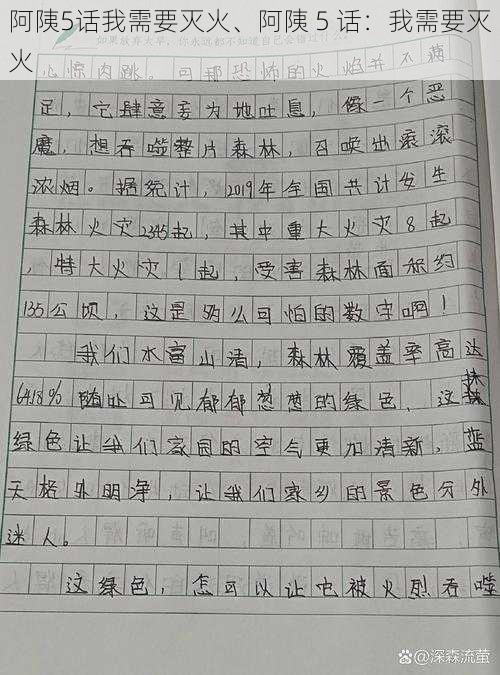 阿陕5话我需要灭火、阿陕 5 话：我需要灭
火
如果放弃太早，你永远都不知道自己会错过什么！
心惊肉跳。可那恐怖的火焰并不满
足，它肆意妄为地吐息，像一个恶
魔，想吞噬整片森林，召唤出滚滚
浓烟。据统计，2019年全国共计发生
森林火灾2345起，其中重大火灾8起
，特大火灾1起，受害森林面积约
135公顷，这是多么可怕的数字啊！
我们水富山清，森林覆盖率高达
64.18%随处可见郁郁葱葱的绿色，这抹
绿色让我们家园的空气更加清新，蓝
天格外明净，让我们家乡的景色分外
迷人。
这绿色，怎可以让它被火烈吞噬
@深森流萤